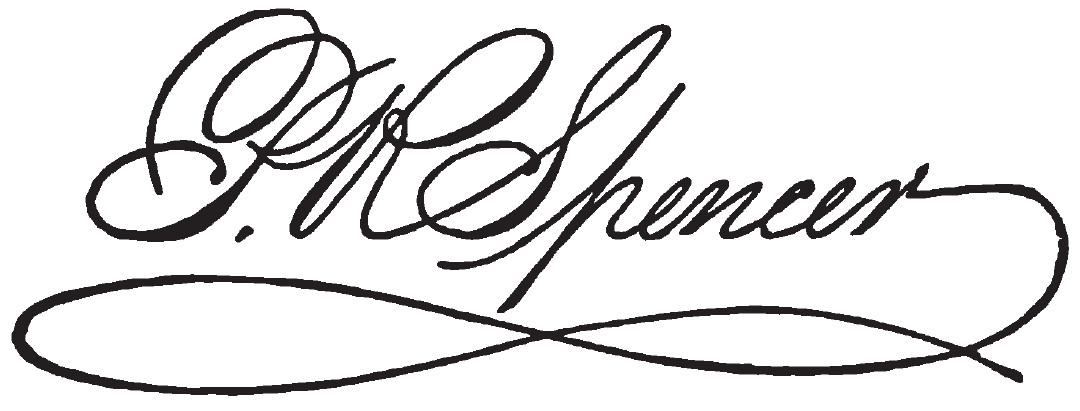 P. R Spencer